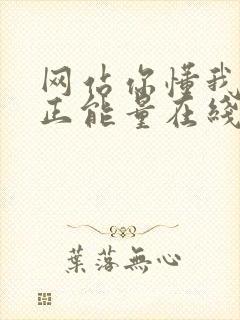 网站你懂我
正能量在线
葉落無心